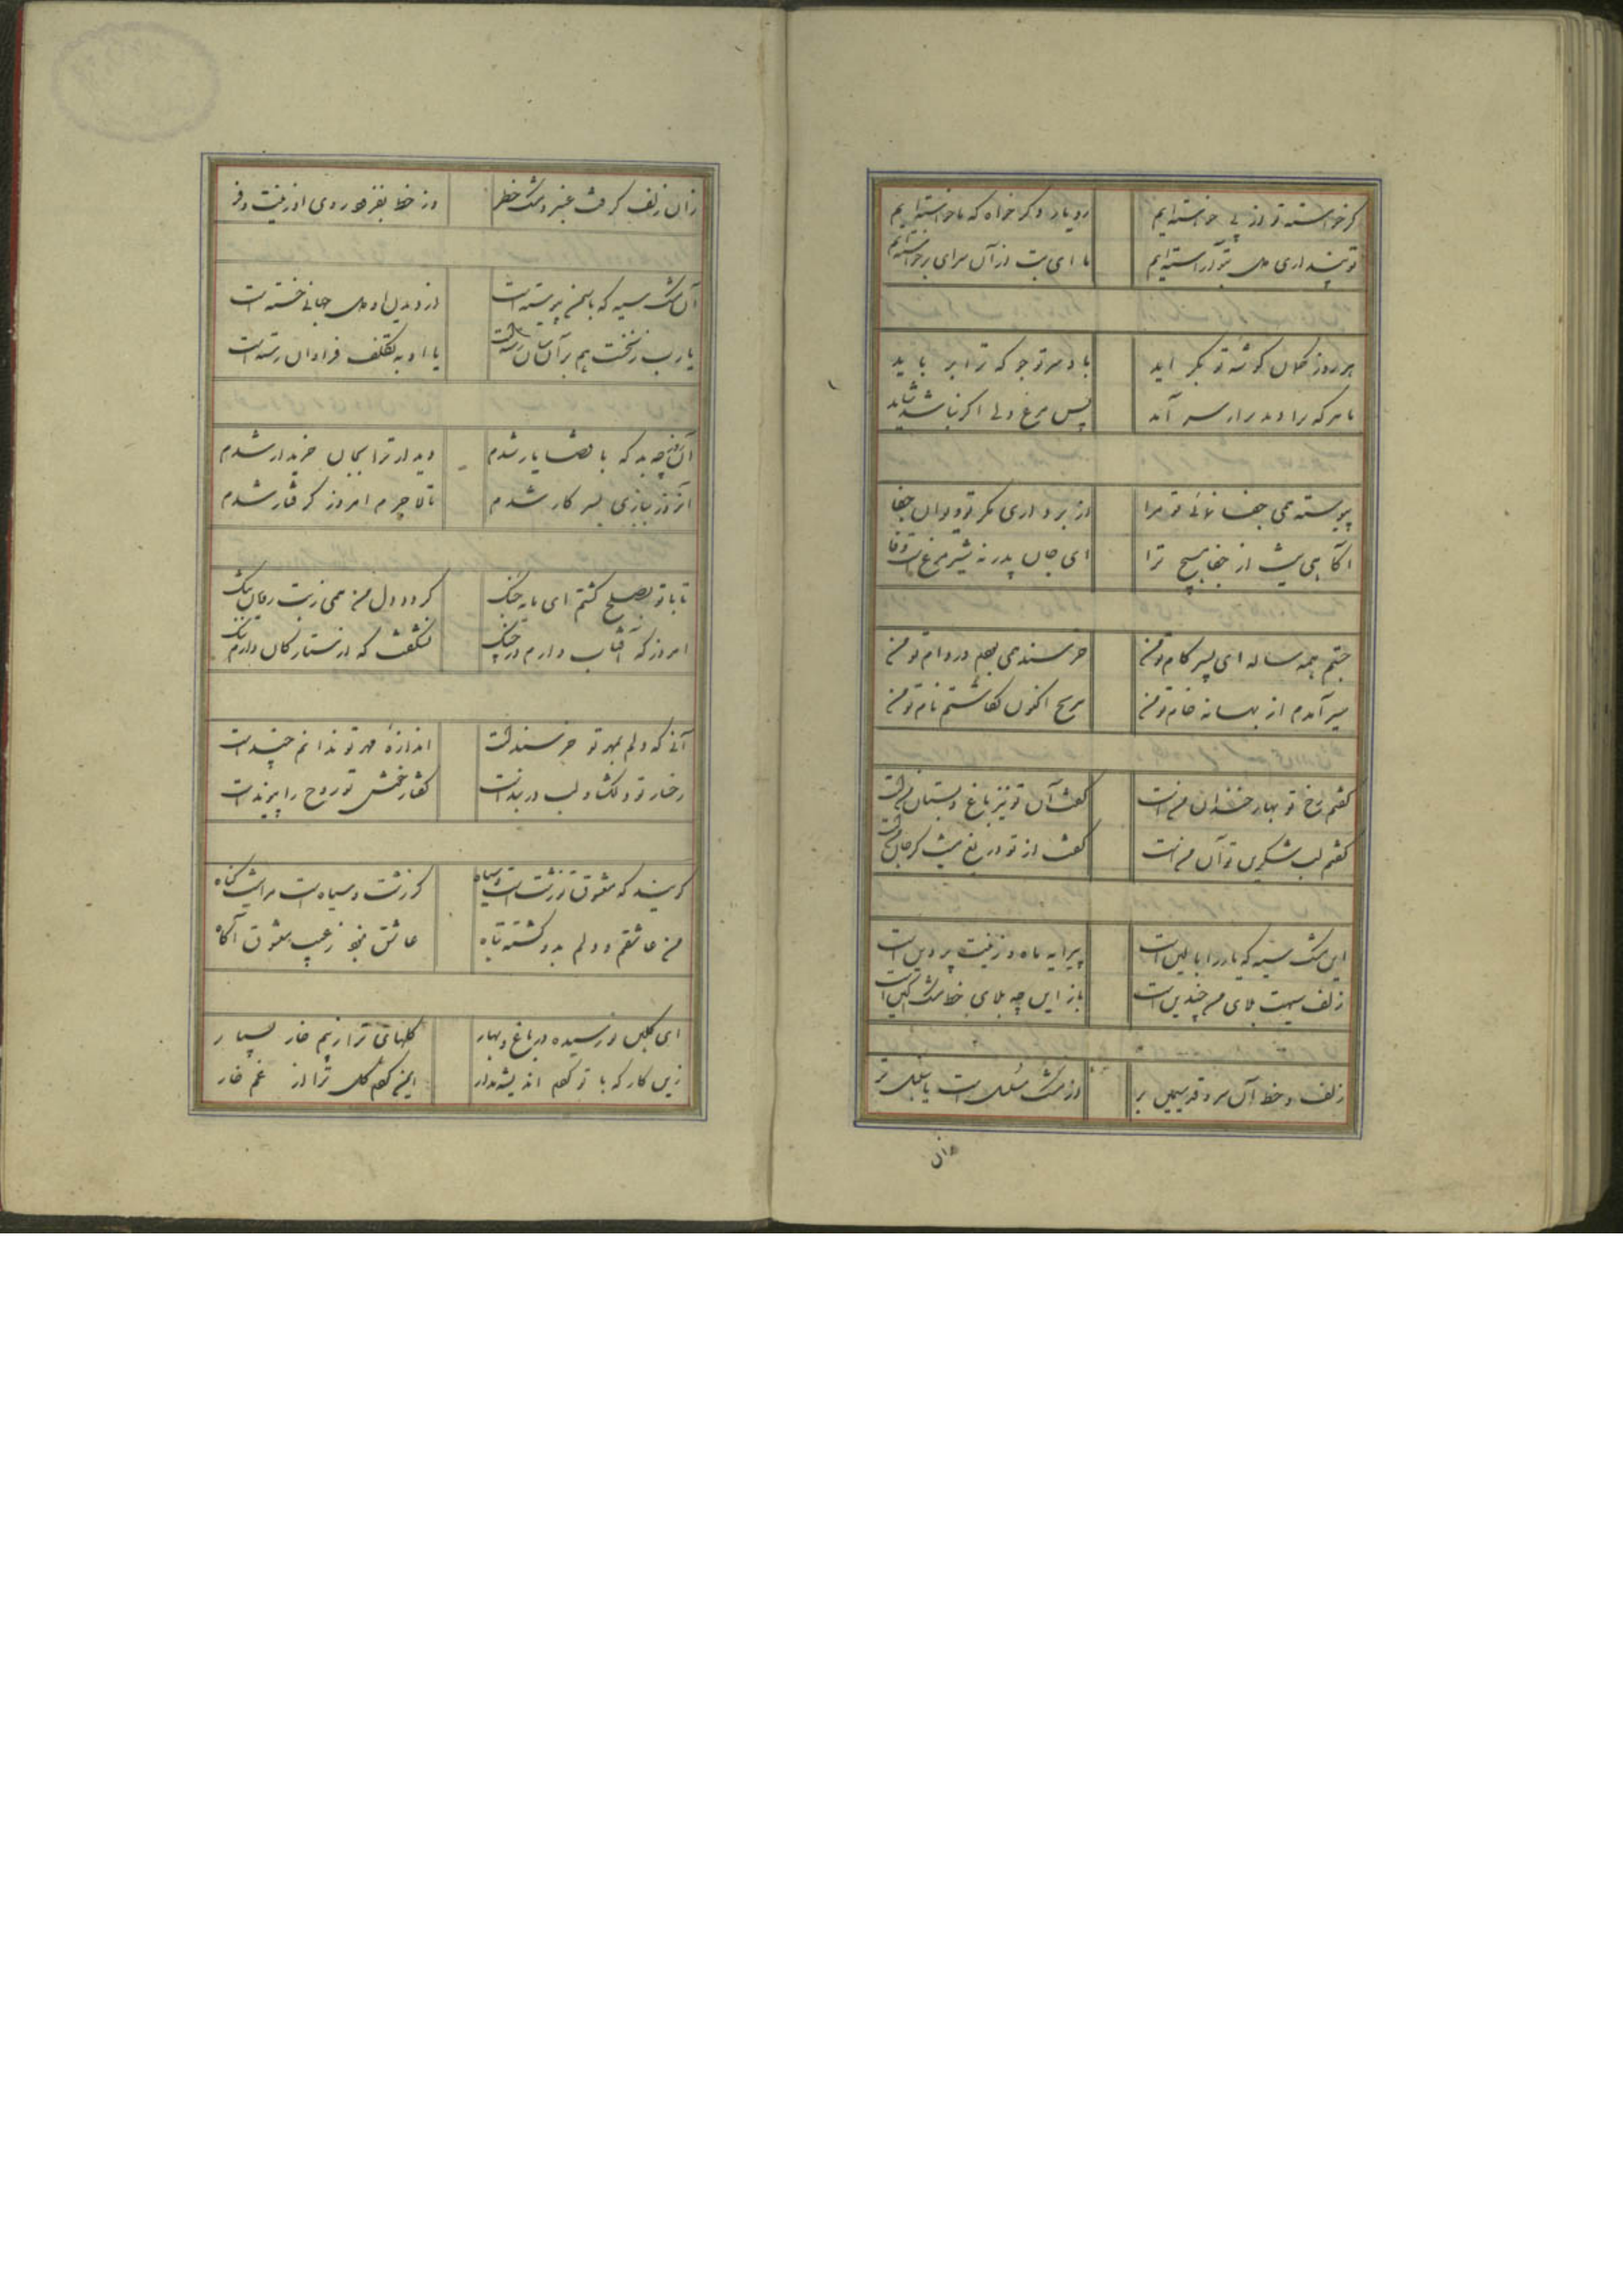 گر خواسته تو از پی خواسته‌ایم رو یار دگر خواه که ما خواسته‌ایم
تو پنداری دل بتو آراسته‌ایم ما ای بت از آن سرای برخاسته‌ایم
هر روز کلان گوشه تو بگراید با و مر تو جو که ترا بر باید
تا هر که را دید برار سر آید پس مرغ ولی اگر نباشد شاید
پیوسته همی جفا نمائی تو مرا از بر داری مگر تو دیوان جفا
آگاهی نیست از جفا هیچ ترا ای جان پدر نه شیر مرغست وفا
جستم همه ساله ای پسر کام تو من خرسند همی بدم در دام تو من
سیر آمدم از بهانه خام تو من بر یخ اکنون نگاشتم نام تو من
گفتم رخ تو بهار خندان منست گفت آن تو نیز باغ و بستان منست
گفتم لب شکرین تو آن منست گفت از تو دریغ نیست گر جان منست
این مشک سیه که یار را بالین است پیرایه ماه و زینت پروین است
زلف سیهت بلای من چندین است باز این چه بلای خط مشک آگین است
زلف و خط آن سرو قد سیمین بر از مشک مسلسل است یا سنبل تر
زان
زان زلف گرفت عنبر و مشک خطر وز خط بفزود روی او زینت و فر
آن مشک سیه که با سمن پیوسته است از دیدن او دل جهانی خسته است
یا رب ز نخست هم بر آن سان رسته است یا او به تکلف فراوان رسته است
آن روز چه بد که با قضا یار شدم دیدار ترا بجان خریدار شدم
آنروز ببازی بسر کار شدم تا لاجرم امروز گرفتار شدم
تا با تو بصلح گشتم ای مایه جنگ گردد دل من همی ز بت رویان تنگ
امروز که آفتاب دارم در چنگ نشگفت که از ستارگان دارم ننگ
آنی که دلم بمهر تو خرسند است اندازه مهر تو ندانم چند است
رخسار تو دلگشا و لب در بند است گفتار خوش تو روح را پیوند است
گویند که معشوق تو زشت است و سیاه گر زشت و سیاه است مرا نیست گناه
من عاشقم و دلم بدو گشته تباه عاشق نبود ز عیب معشوق آگاه
ای گلبن نو رسیده در باغ و بهار گلهای ترا ز بیم خار بسیار
زین کار که با تو کردم اندیشه مدار ایمن کردم گل ترا از غم خار